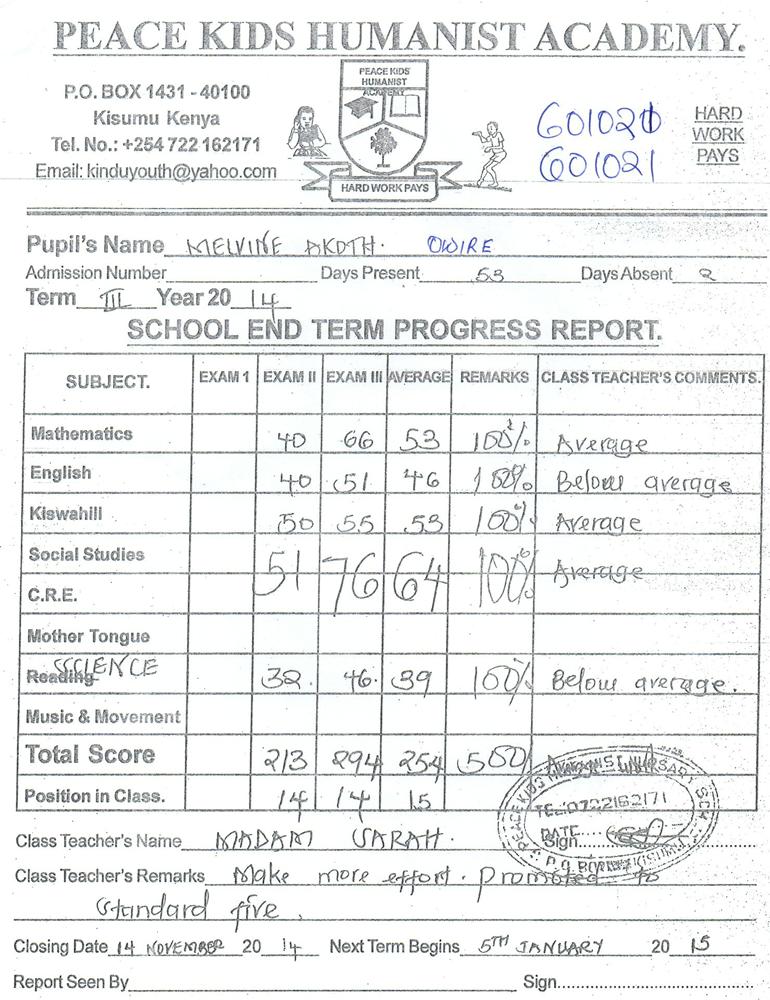 PEACE KIDS HUMANIST ACADEMY.
P.O. BOX 1431 - 40100
Kisumu Kenya
Tel. No.: +254 722 162171
Email: kinduyouth@yahoo.com
PEACE KIDS'
HUMANIST
ACADEMY
HARD WORK PAYS
G01020
G01021
HARD
WORK
PAYS
Pupil's Name MELVINE AKOTH. OWIRE
Admission Number Days Present 53 Days Absent 2
Term III Year 20 14
SCHOOL END TERM PROGRESS REPORT.
SUBJECT. EXAM 1 EXAM II EXAM III AVERAGE REMARKS CLASS TEACHER'S COMMENTS.
Mathematics 40 66 53 100% Average
English 40 51 46 100% Below average
Kiswahili 50 55 53 100% Average
Social Studies 51 76 64 100% Average
C.R.E.
Mother Tongue
Reading SCIENCE 32. 46. 39 100% Below average.
Music & Movement
Total Score 213 294 254 500
Position in Class. 14 14 15
PEACE KIDS HUMANIST NURSARY SCH
TEL:0722162171
DATE....
Sign..........
P.O. BOX
Class Teacher's Name MADAM SARAH.
Class Teacher's Remarks Make more effort. Promoted to
standard five.
Closing Date 14 NOVEMBER 20 14 Next Term Begins 5TH JANUARY 20 15
Report Seen By Sign..............................